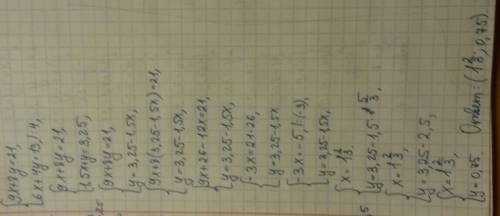 {9x+8y=21,
{6x+4y=13|:4,
{9x+8y=21,
{1,5x+y=3,25,
{9x+8y=21,
{y=3,25-1,5x,
{9x+8(3,25-1,5x)=21,
{y=3,25-1,5x,
{9x+26-12x=21,
{y=3,25-1,5x,
{-3x=21-26,
{y=3,25-1,5x
{-3x=-5|:(-3),
{y=3,25-1,5x,
{x=1 2/3,
{y=3,25-1,5·5/3,
{x=1 2/3,
{y=3,25-2,5,
{x=1 2/3,
{y=0,75 Ответ: (1 2/3; 0,75).